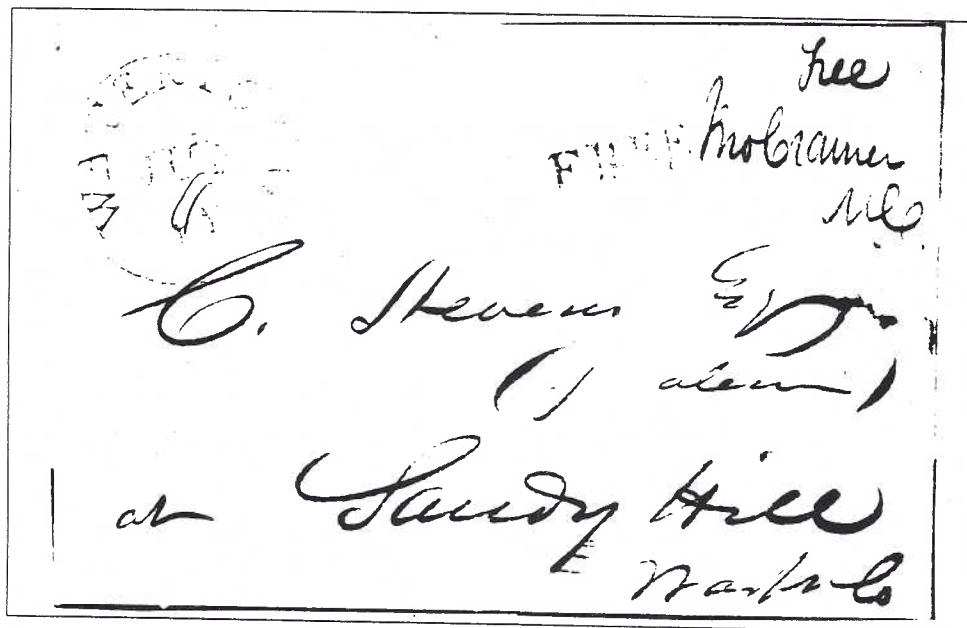 Free
FREE Jno Cramer
M.C.
C. Stevens Esqr
(Salem)
at Sandy Hill
Washn Co